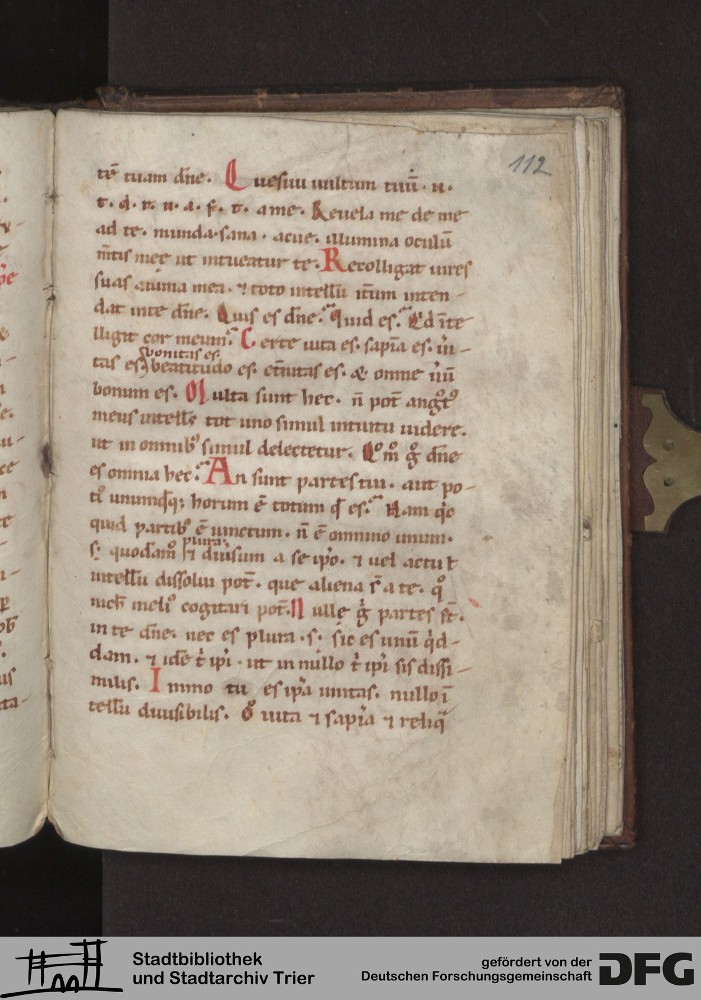 112
tē tuam dn̄e. Quesiui uultum tuū. u.
t. d. r. n. a. f. t. a me. Reuela me de me
ad te. munda. sana. acue. illumina oculū
m̄tis mee ut intueatur te. Recolligat uires
suas anima mea. ⁊ toto intellū iterum inten-
dat in te dn̄e. Quis es dn̄e. Quid es.
lligit cor meum. Certe uita es. sapīa es.
bonitas es.
tas es. beatitudo es. et̄nitas es. & omne
bonum es. Multa sunt hec. n̄ pot̄
meus intell; tot uno simul intuitu uidere.
ut in omnib; simul delectetur. Qͦmͦ gͦ dn̄e
es omnia hec. An sunt partes tui. aut po-
unumqͥdq; horum ē totum qͩ es. Nam
quid partib; ē uinctum. n̄ ē omnino unum.
plura
s; quodāmͦ ⁊ diuisum a se ip̄o. ⁊ uel actu ł
intellū dissolui pot̄. que aliena s̄ a te.
nich meliͧ cogitari pot̄. Nulle gͦ partes st̄.
in te dn̄e. nec es plura. s; sic es unū qͥd-
dam. ⁊ idē t̄ ip̄i. ut in nullo t̄ ip̄i sis dissi-
milis. Immo tu es ip̄a unitas. nullo ī
tellū diuisibilis. gͦ uita ⁊ sapīa ⁊ reliq̄
Stadtbibliothek
und Stadtarchiv Trier
gefördert von der
Deutschen Forschungsgemeinschaft
DFG